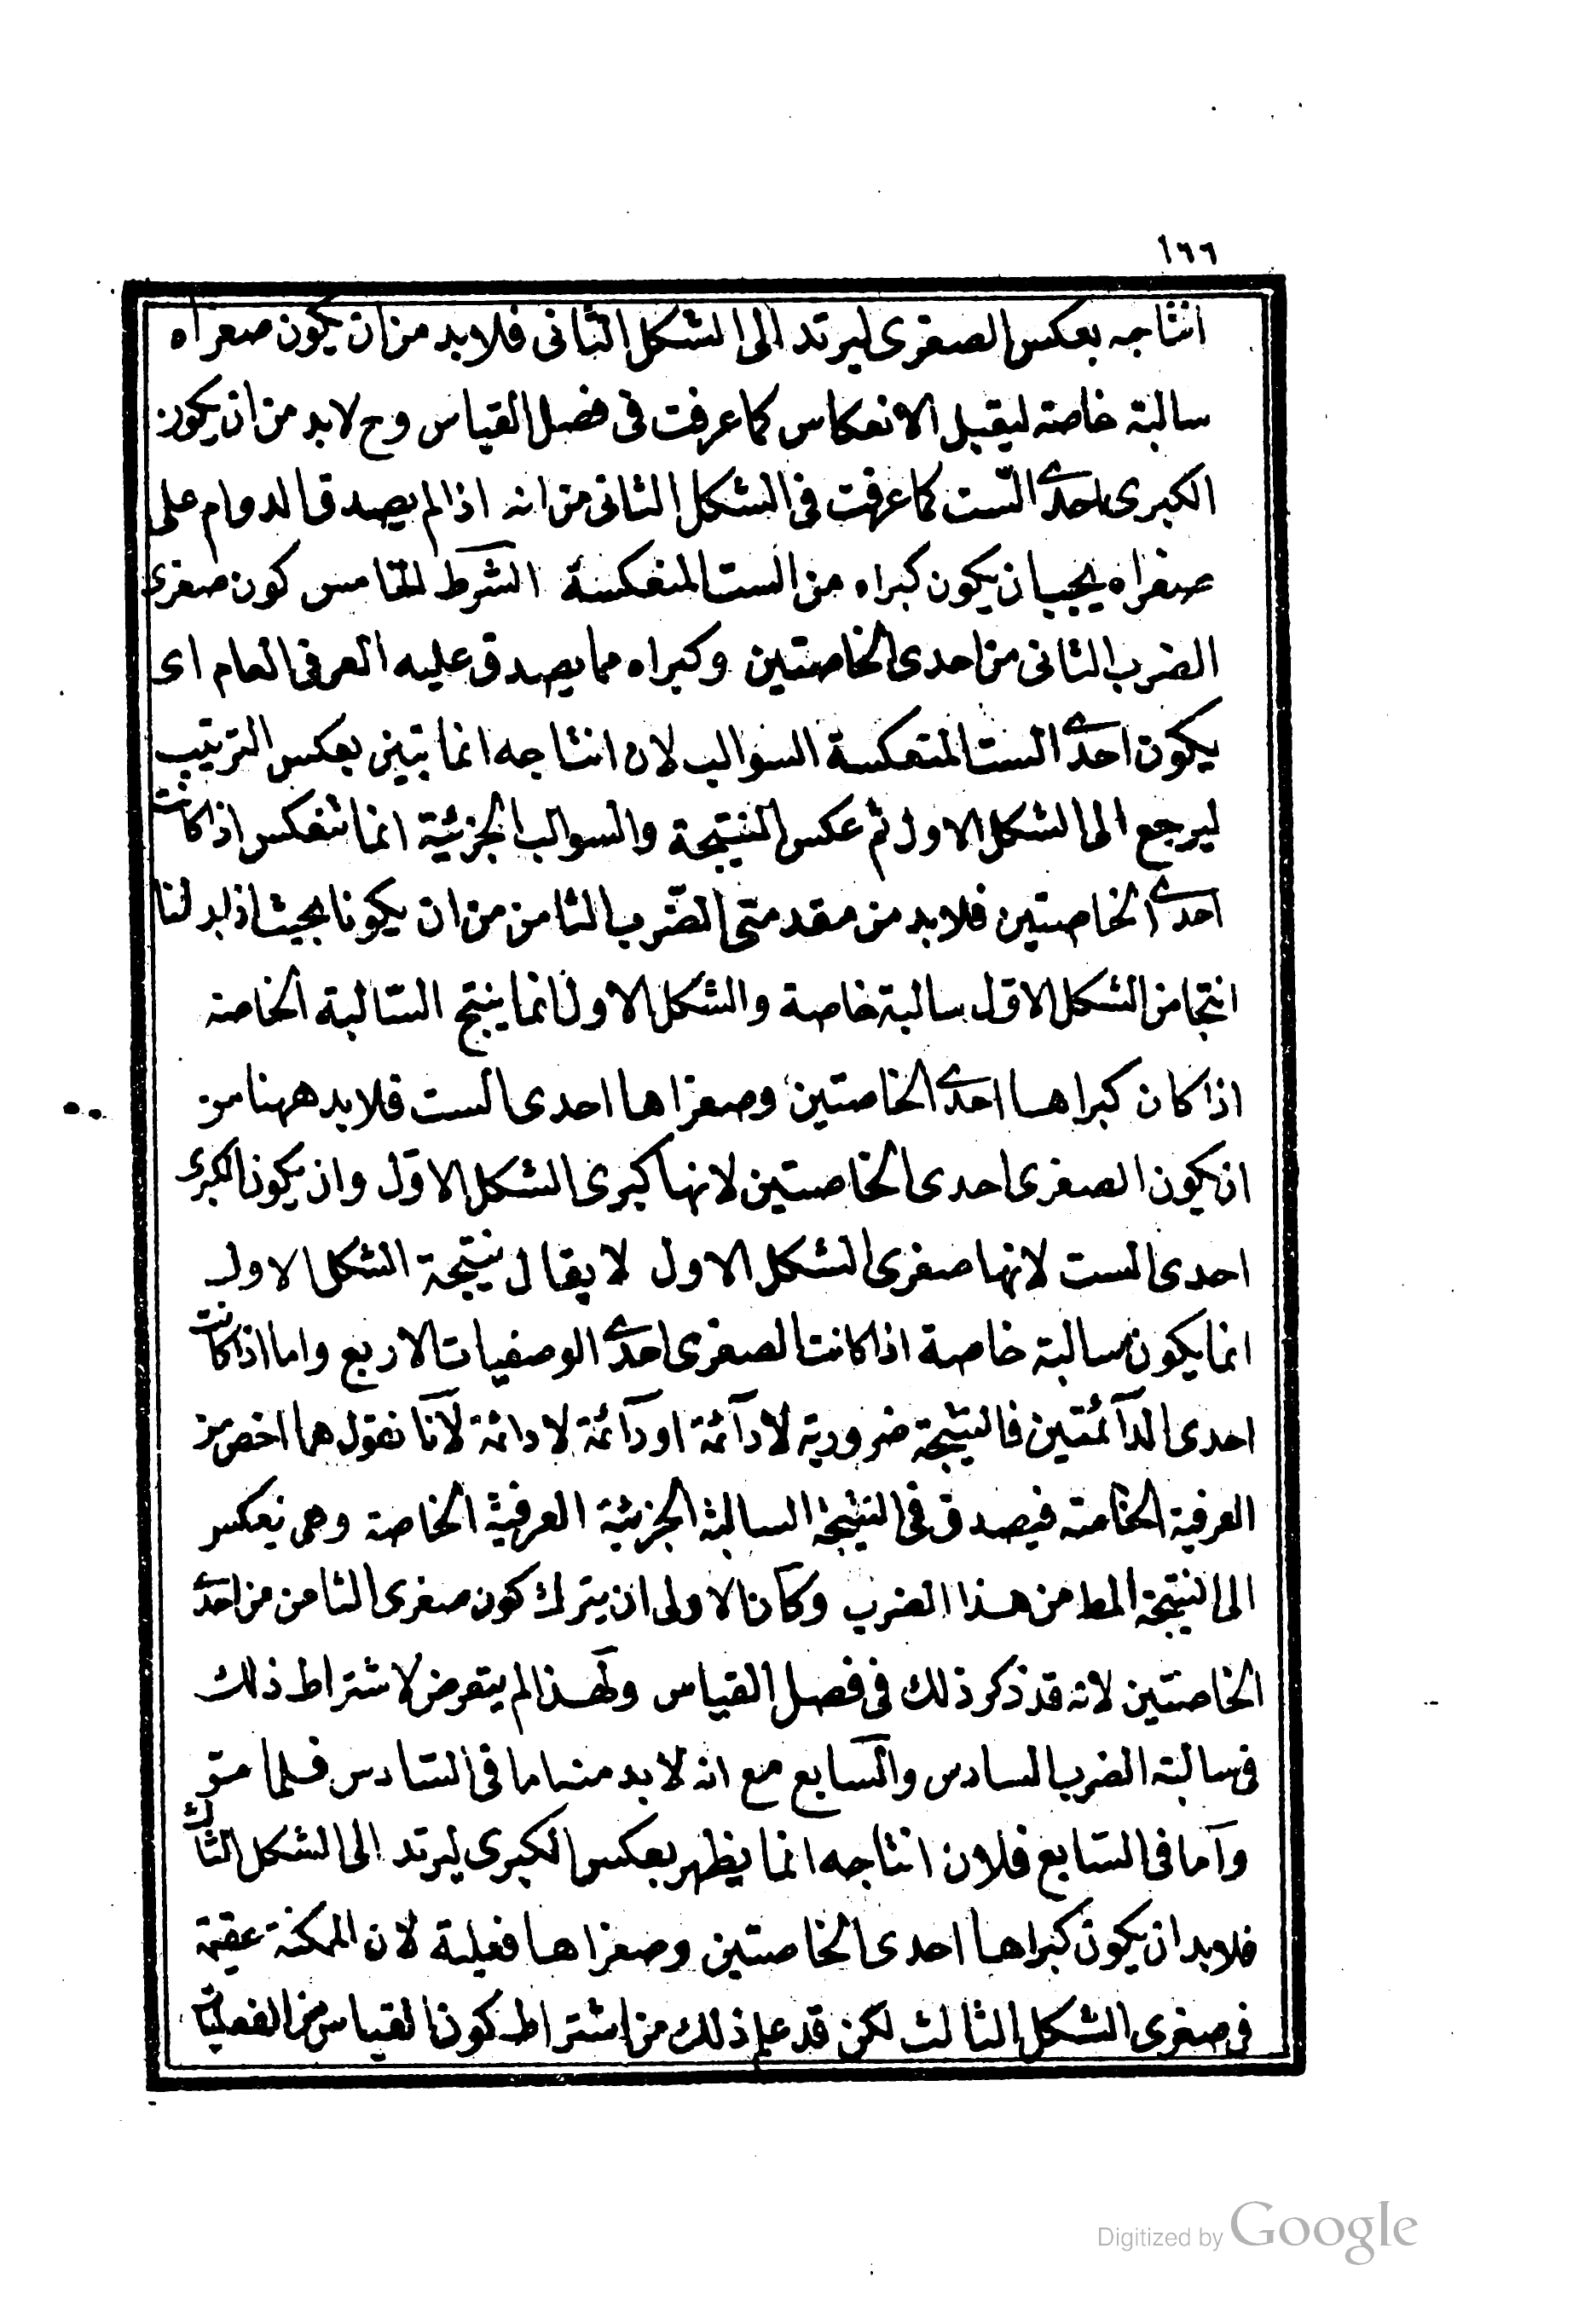 ١٦٦
انتاجه بعكس الصغرى ليرتد الى الشكل الثانى فلابد من ان يكون صغراه
سالبة خاصة ليقبل الانعكاس كما عرفت فى فصل القياس وح لابد من ان يكون
الكبرى احدى الست كما عرفت فى الشكل الثانى من انه اذا لم يصدق الدوام على
صغراه يجب ان يكون كبراه من الست المنعكسة الشرط الخامس كون صغرى
الضرب الثانى من احدى الخاصتين وكبراه مما يصدق عليه العرفى العام اى
يكون احدى الست المنعكسة السوالب لان انتاجه انما تبين بعكس الترتيب
ليرجع الى الشكل الاول ثم عكس النتيجة والسوالب الجزئية انما تنعكس اذا كانت
احدى الخاصتين فلابد من مقدمتى الضرب الثامن من ان يكونا بحيث اذا بدلنا
انتجا من الشكل الاول سالبة خاصة والشكل الاول انما ينتج السالبة الخاصة
اذا كان كبراها احدى الخاصتين وصغراها احدى الست فلابد ههنا من
ان يكون الصغرى احدى الخاصتين لانها كبرى الشكل الاول وان يكون الكبرى
احدى الست لانها صغرى الشكل الاول لا يقال نتيجة الشكل الاول
انما يكون سالبة خاصة اذا كانت الصغرى احدى الوصفيات الاربع واما اذا كانت
احدى الدآئمتين فالنتيجة ضرورية لا دآئمة او دآئمة لا دائمة لانا نقول هما اخص من
العرفية الخاصة فيصدق فى النتيجة السالبة الجزئية العرفية الخاصة وهى ينعكس
الى النتيجة المط من هذا الضرب وكان الاولى ان يترك كون صغرى الثامن من احدى
الخاصتين لانه قد ذكر ذلك فى فصل القياس ولهذا لم يتعرض لاشتراط ذلك
فى سالبة الضرب السادس والسابع مع انه لابد منه اما فى السادس فلما مر
واما فى السابع فلان انتاجه انما يظهر بعكس الكبرى ليرتد الى الشكل الثالث
فلابد ان يكون كبراها احدى الخاصتين وصغراها فعلية لان الممكنة عقيمة
فى صغرى الشكل الثالث لكن قد علم ذلك من اشتراط كون القياس من الفعليات
Digitized by Google